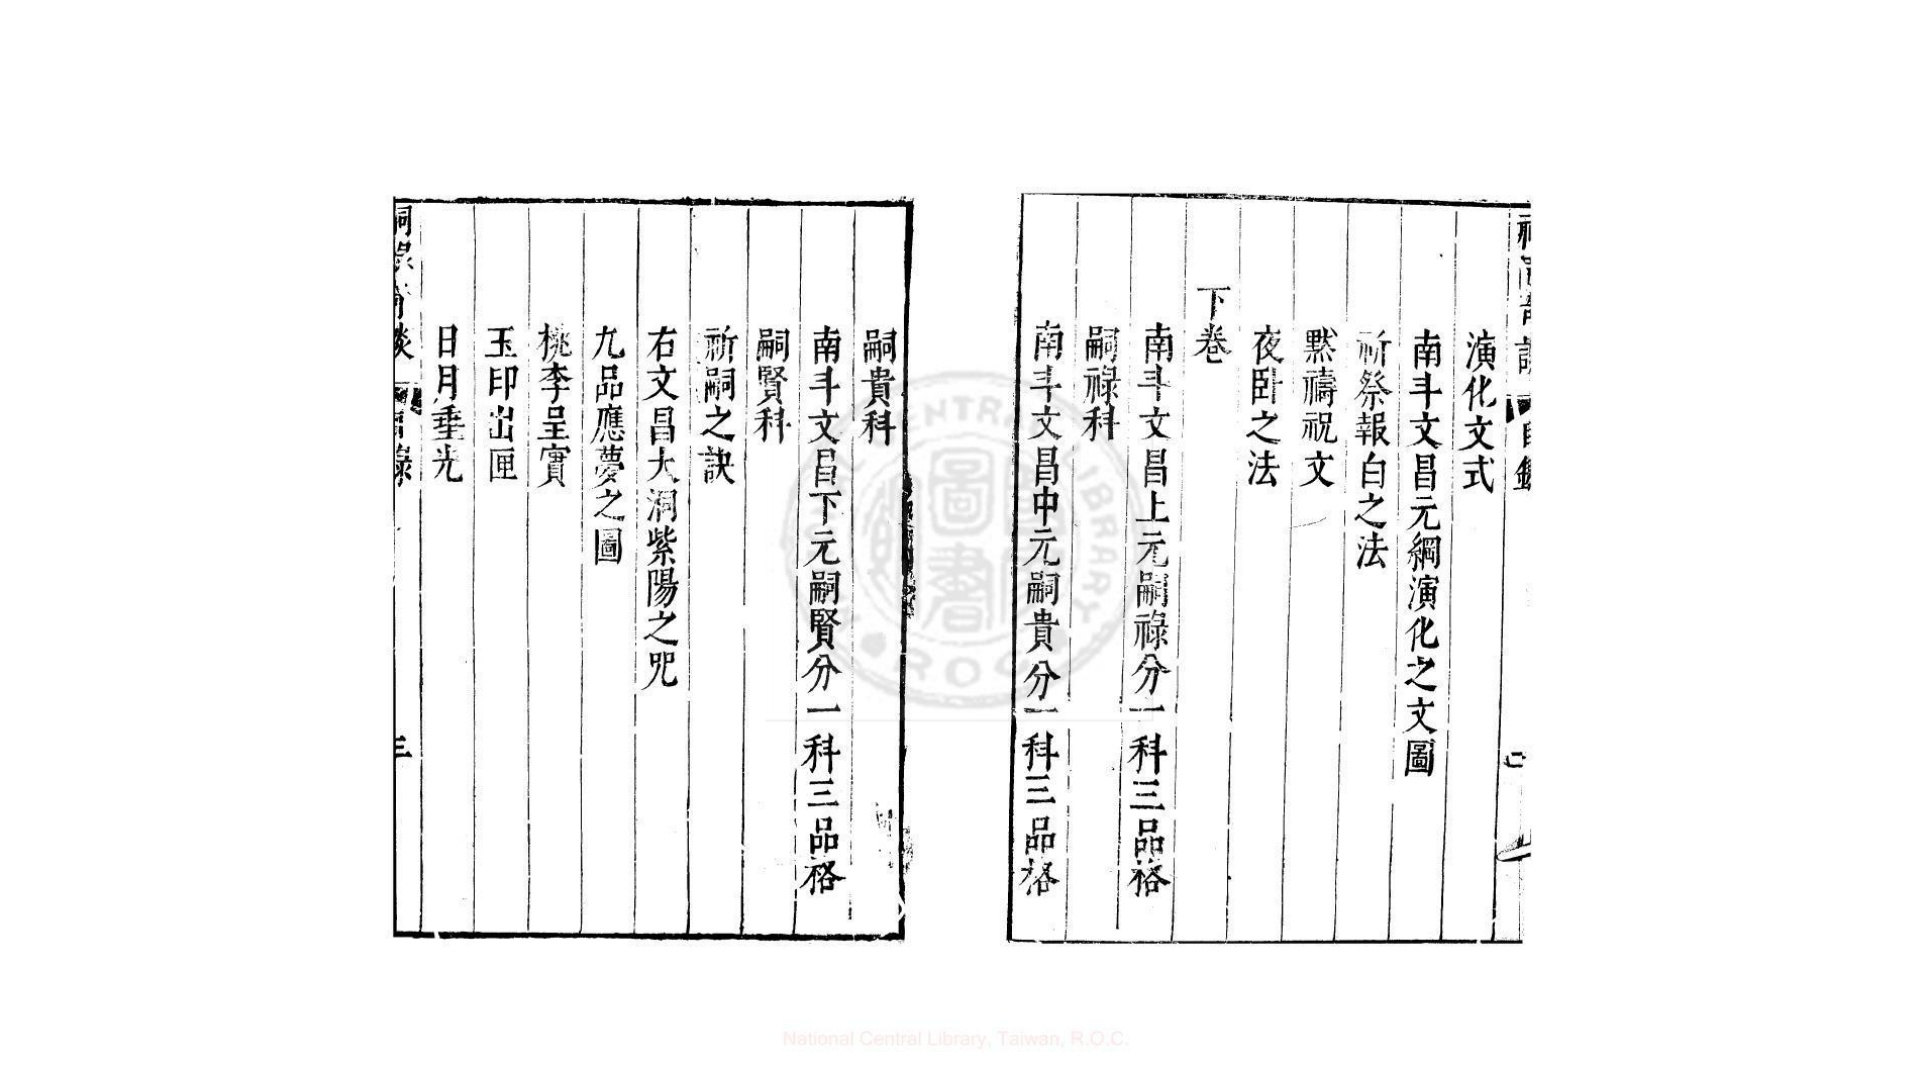 演化文式
南斗文昌元綱演化之文圖
祈祭報白之法
默禱祝文
夜卧之法
下卷
南斗文昌上元嗣祿分一科三品格
嗣祿科
南斗文昌中元嗣貴分一科三品格
嗣貴科
南斗文昌下元嗣賢分一科三品格
嗣賢科
祈嗣之訣
右文昌大洞紫陽之咒
九品應夢之圖
桃李呈實
玉印出匣
日月垂光
三
National Central Library, Taiwan, R.O.C.